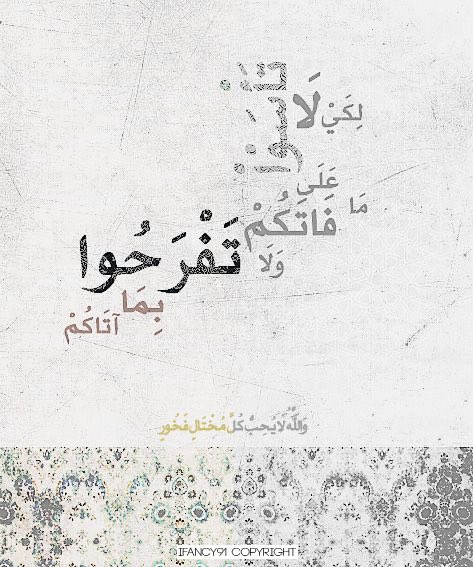 لِكَيْ لَا
تَأْسَوْا
عَلَى
مَا فَاتَكُمْ
وَلَا
تَفْرَحُوا
بِمَا
آتَاكُمْ
وَاللَّهُ لَا يُحِبُّ كُلَّ مُخْتَالٍ فَخُورٍ
IFANCY91 COPYRIGHT